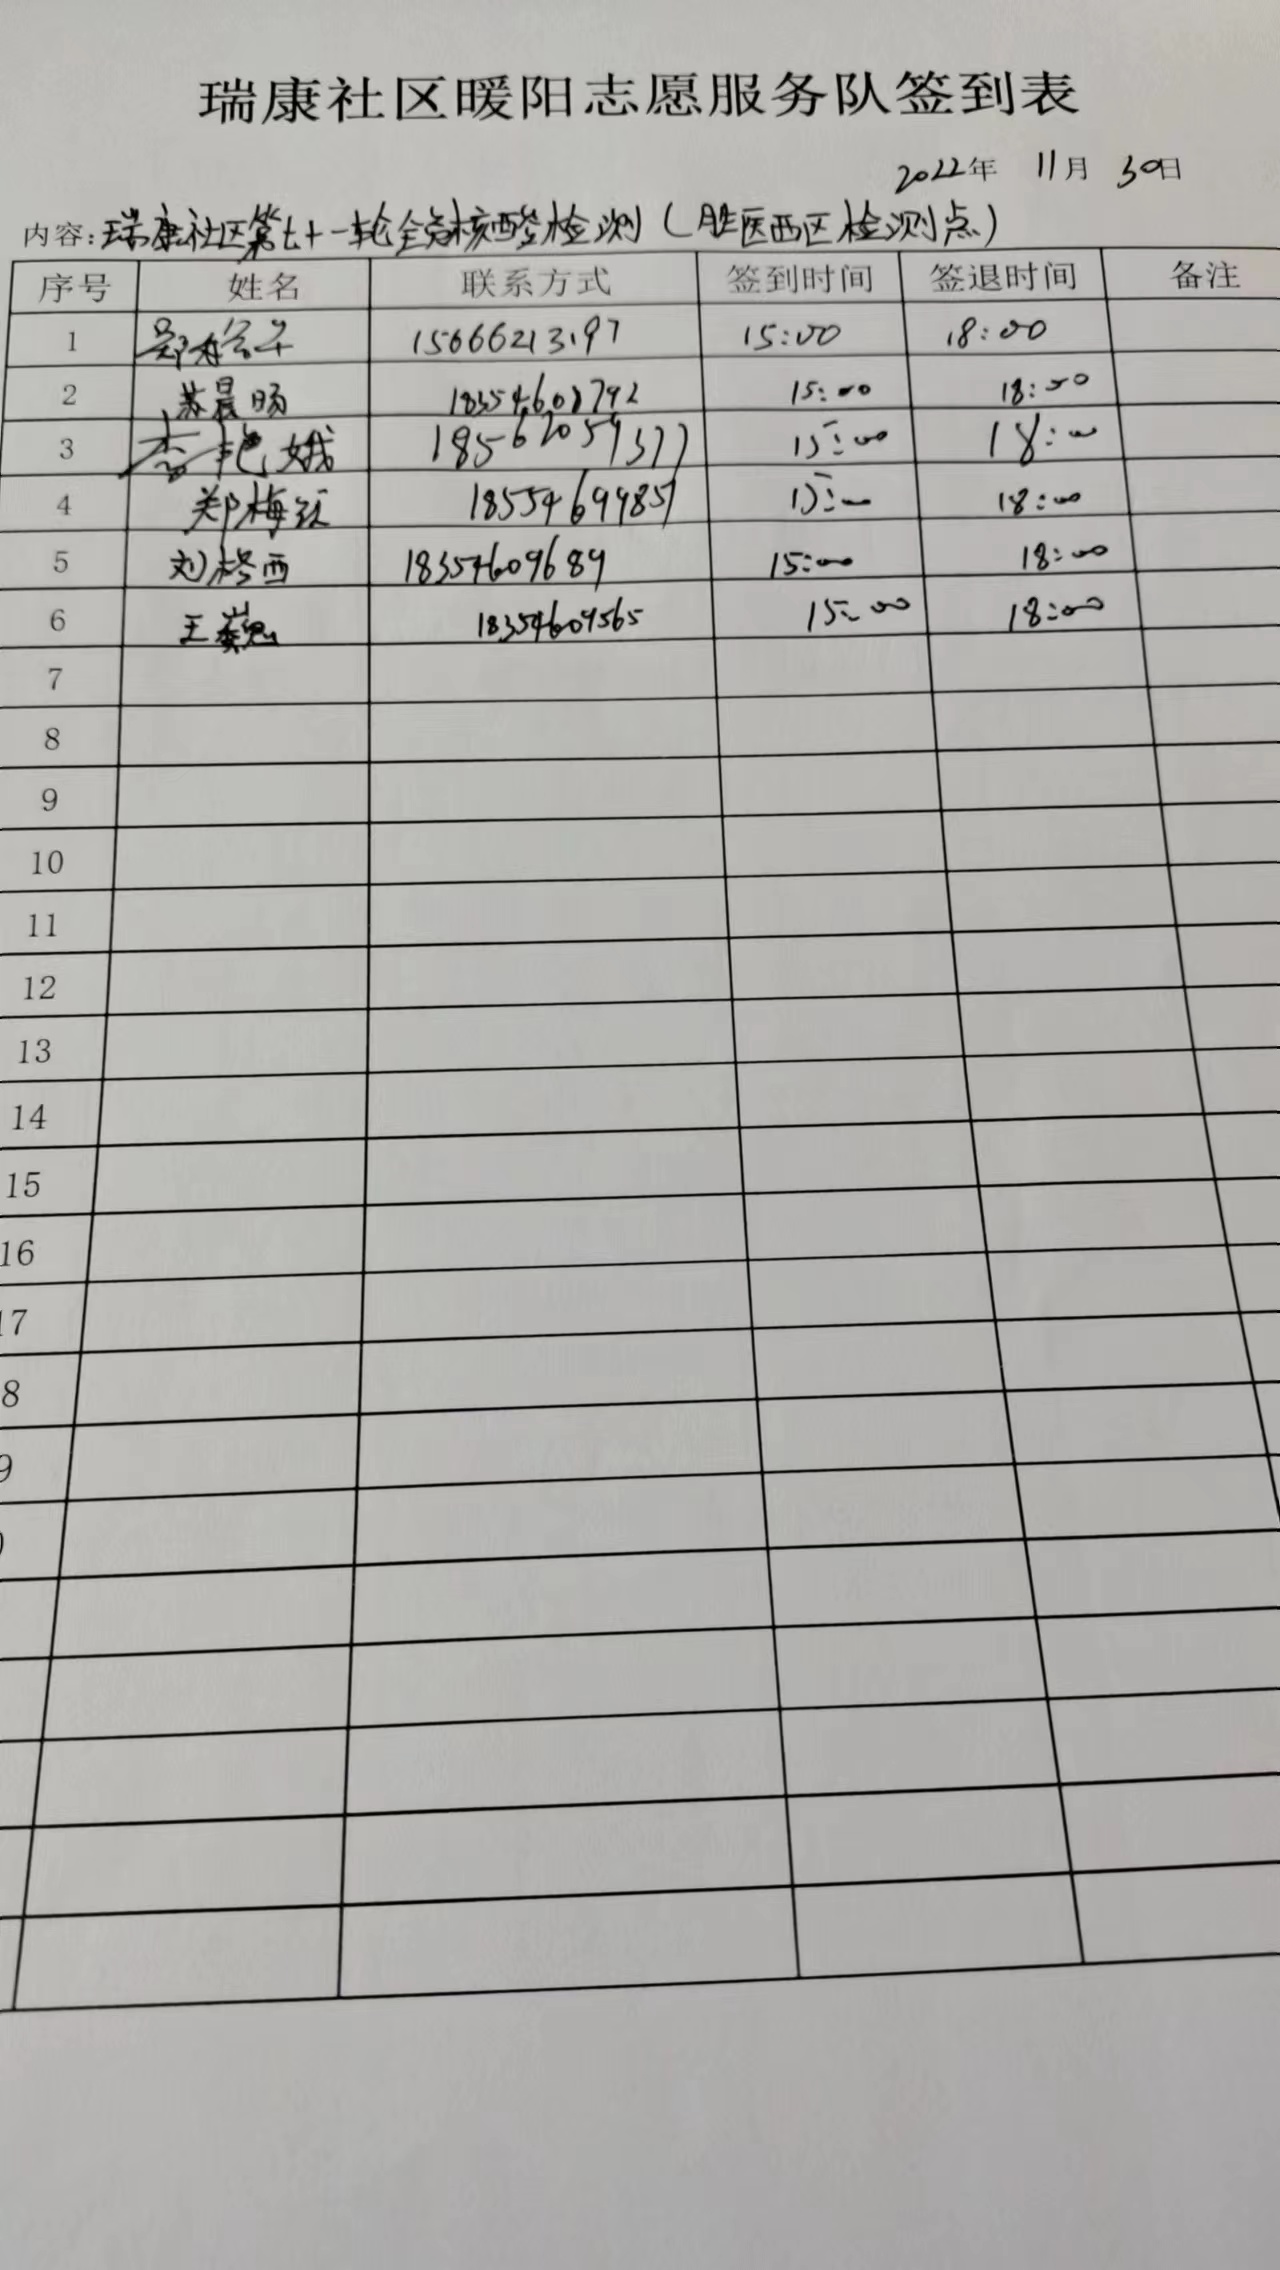 瑞康社区暖阳志愿服务队签到表
2022年 11月 30日
内容:瑞康社区第七十一轮全员核酸检测(胜医西区检测点)
序号 姓名 联系方式 签到时间 签退时间 备注
1 15666213197 15:00 18:00
2 苏晨旸 18354608792 15:00 18:00
3 李艳娥 18562059377 15:00 18:00
4 郑梅 18554699857 15:00 18:00
5 刘格西 18354609689 15:00 18:00
6 王 18354609565 15:00 18:00
7
8
9
10
11
12
13
14
15
16
17
8
9